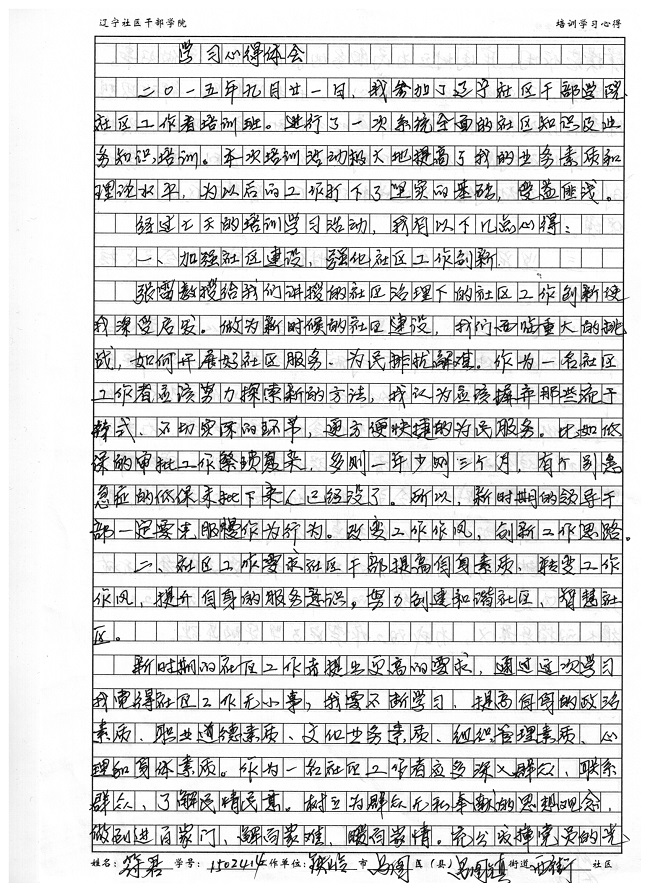 辽宁社区干部学院 培训学习心得
学习心得体会
二〇一五年九月廿一日，我参加了辽宁社区干部学院
社区工作者培训班。进行了一次系统全面的社区知识及业
务知识培训。本次培训活动极大地提高了我的业务素质和
理论水平，为以后的工作打下了坚实的基础，受益匪浅。
经过七天的培训学习活动，我有以下几点心得：
一、加强社区建设，强化社区工作创新
张雷教授给我们讲授的社区治理下的社区工作创新使
我深受启发。做为新时候的社区建设，我们面临重大的挑
战，如何开展好社区服务、为民排忧解难。作为一名社区
工作者应该努力探索新的方法，我认为应该摒弃那些流于
形式、不切实际的环节，更方便快捷的为民服务。比如低
保的审批工作繁琐复杂，多则一年少则三个月，有个别急
急症的低保未批下来人已经没了。所以，新时期的领导干
部一定要克服慢作为行为。改变工作作风，创新工作思路。
二、社区工作要求社区干部提高自身素质，转变工作
作风，提升自身的服务意识。努力创建和谐社区、智慧社
区。
新时期的社区工作者提出更高的要求，通过这次学习
我觉得社区工作无小事，我要不断学习，提高自身的政治
素质、职业道德素质、文化业务素质、组织管理素质、心
理和身体素质。作为一名社区工作者应多深入群众、联系
群众、了解民情民意。树立为群众无私奉献的思想观念，
做到进百家门，解百家难，暖百家情。充分发挥党员的先
姓名： 学号：1502414 工作单位：铁岭 市 区（县） 街道 西街 社区